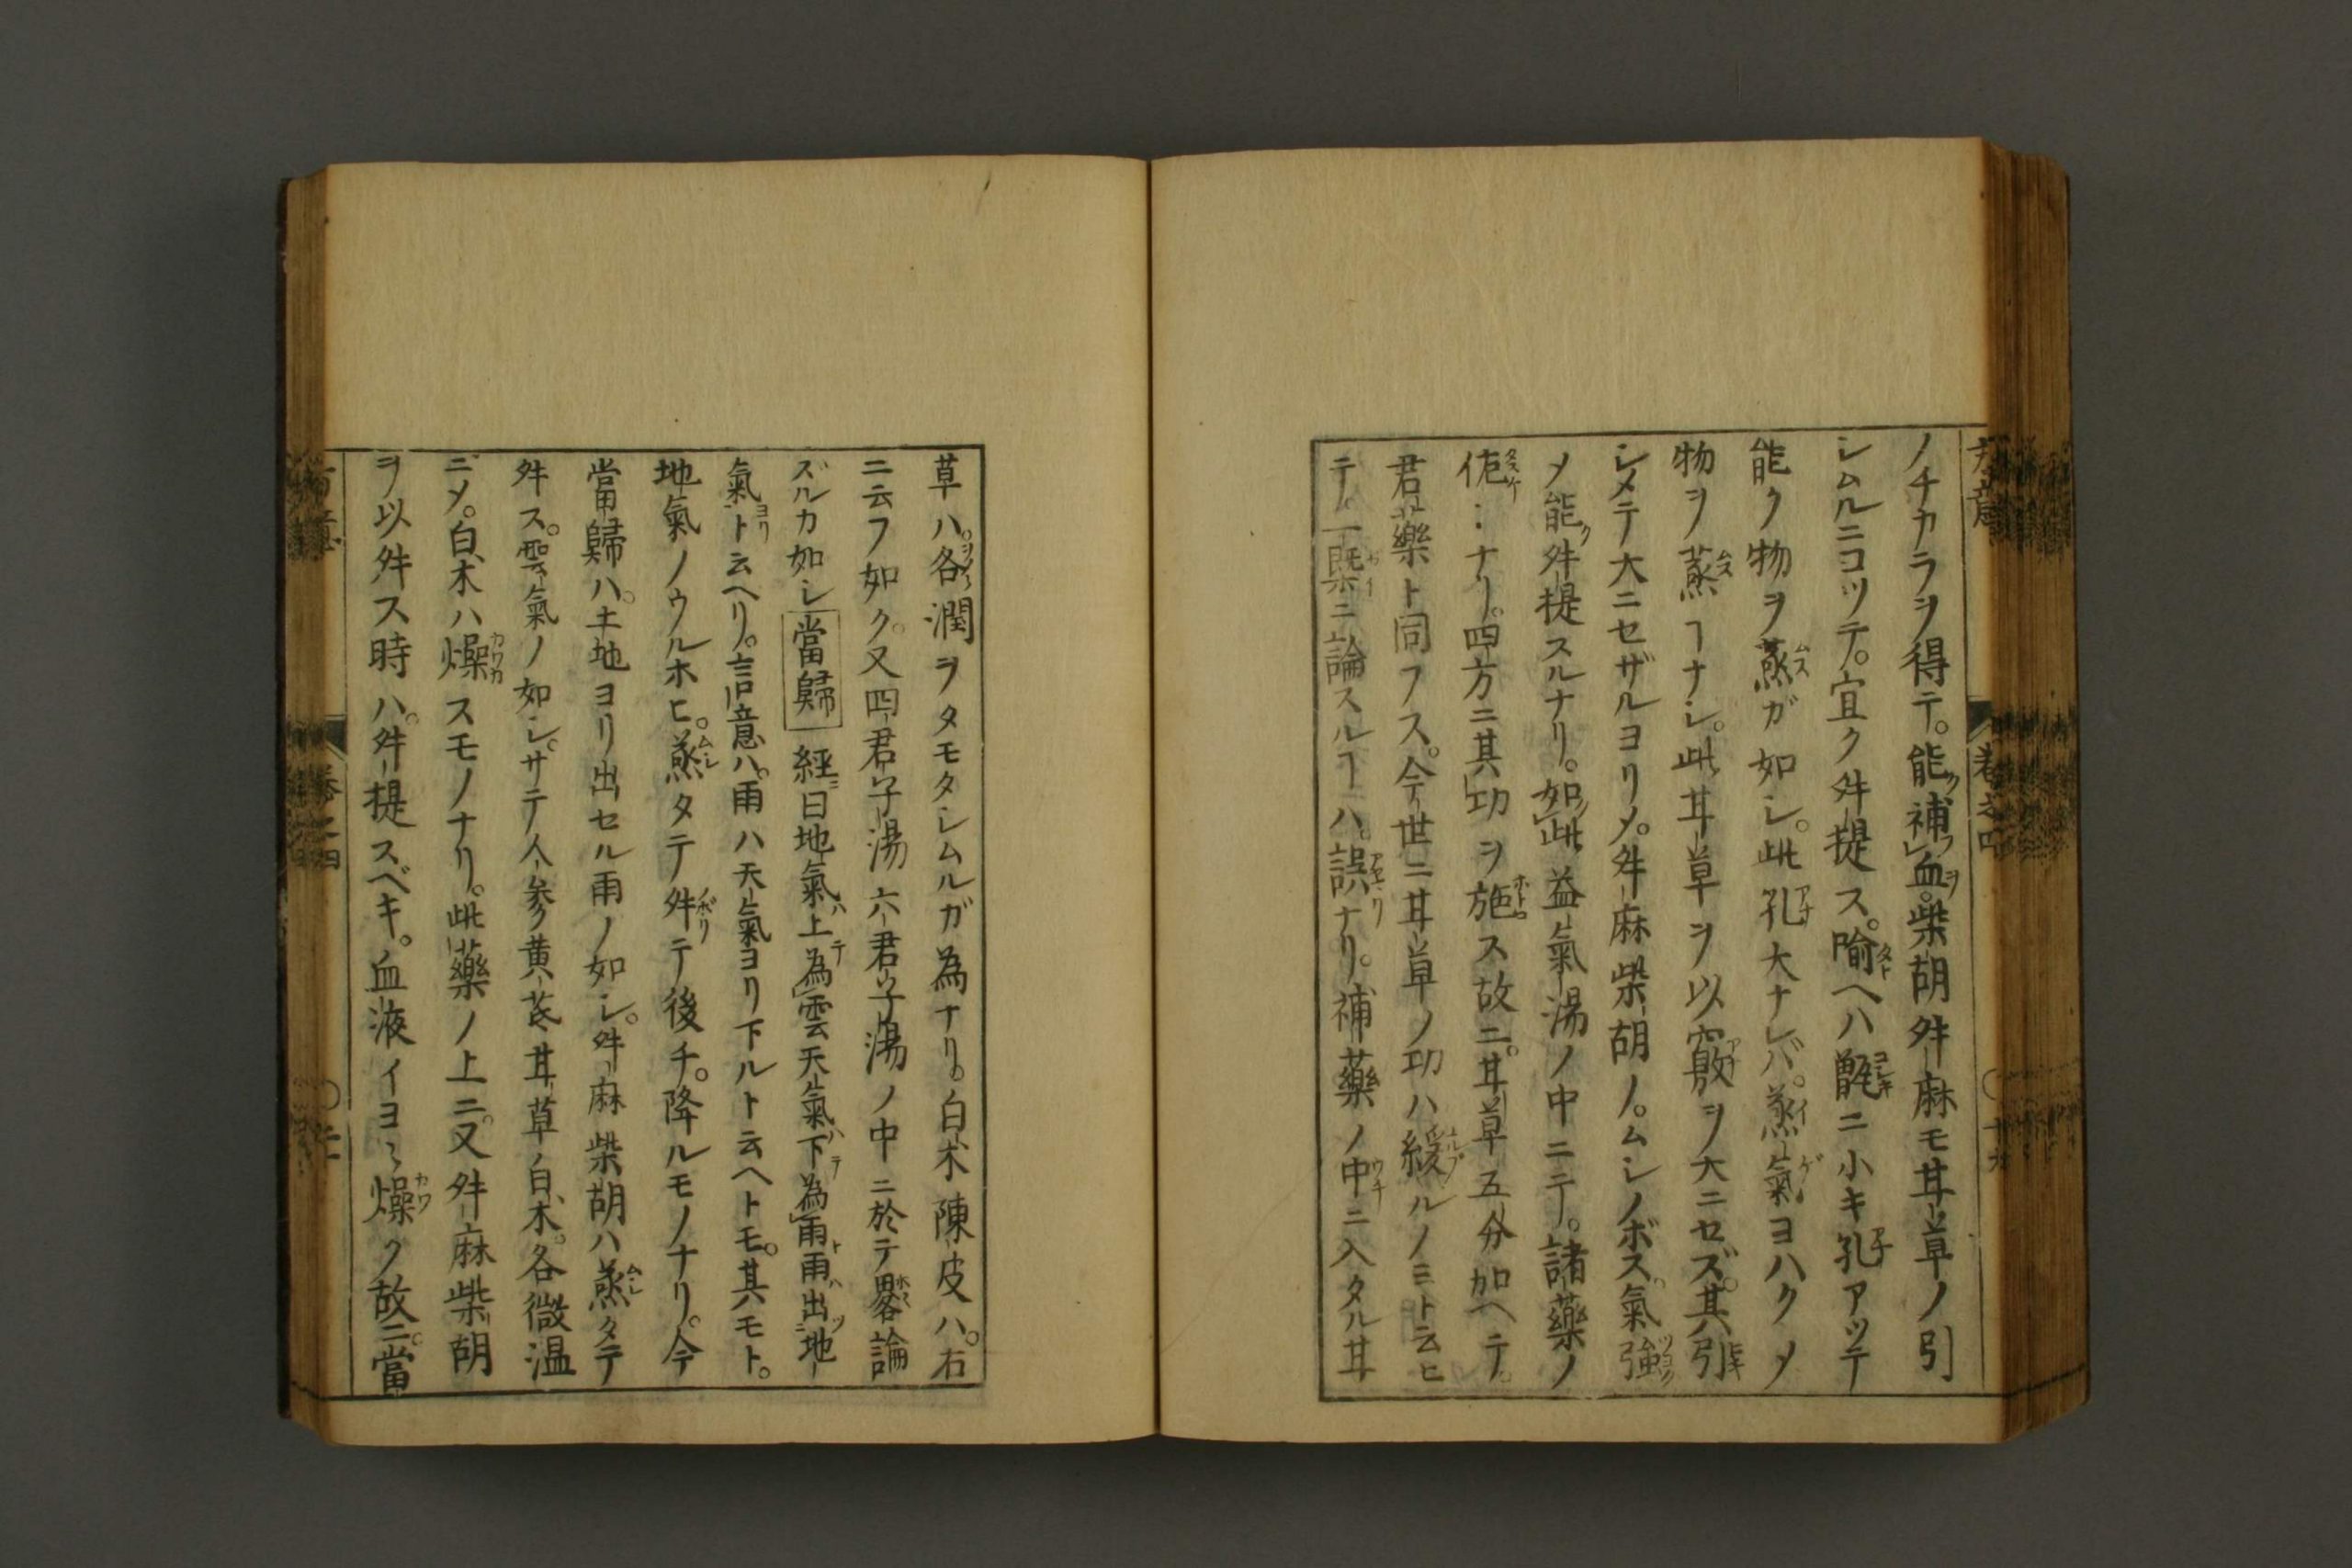 ノチカラヲ得テ。能ク補フ血ヲ。柴胡升麻モ甘草ノ引
シムルニヨツテ。宜ク升提ス。喩ヘハ甑ニ小キ孔アツテ
能ク物ヲ蒸ガ如シ。此孔大ナレバ。蒸氣ヨハクメ
物ヲ蒸ヿナシ。此甘草ヲ以竅ヲ大ニセズ。其引
シメテ大ニセザルヨリメ。升麻柴胡ノ。ムシノボス氣強
メ能升提スルナリ。如此益氣湯ノ中ニテ。諸藥ノ
佐ナリ。四方ニ其功ヲ施ス故ニ。甘草五分加ヘテ。
君藥ト同フス。今世ニ甘草ノ功ハ緩ルノミト云ヒ
テ。一槩ニ論スルヿハ。誤ナリ。補藥ノ中ニ入タル甘
草ハ。各潤ヲタモタシムルガ為ナリ。白朮陳皮ハ。右
ニ云フ如ク。又四君子湯六君子湯ノ中ニ於テ畧論
ズルカ如シ 當歸 經曰地氣上為雲天氣下為雨雨出地
氣ト云ヘリ。言意ハ。雨ハ天氣ヨリ下ルト云ヘトモ。其モト。
地氣ノウルホヒ。蒸タテ升テ後チ。降ルモノナリ。今
當歸ハ。土地ヨリ出セル雨ノ如シ。升麻柴胡ハ蒸タテ
升ス。雲氣ノ如シ。サテ人參黄芪甘草白朮。各微温
ニメ。白朮ハ燥スモノナリ。此藥ノ上ニ。又升麻柴胡
ヲ以升ス時ハ。升提スベキ。血液イヨ〻燥ク故ニ。當